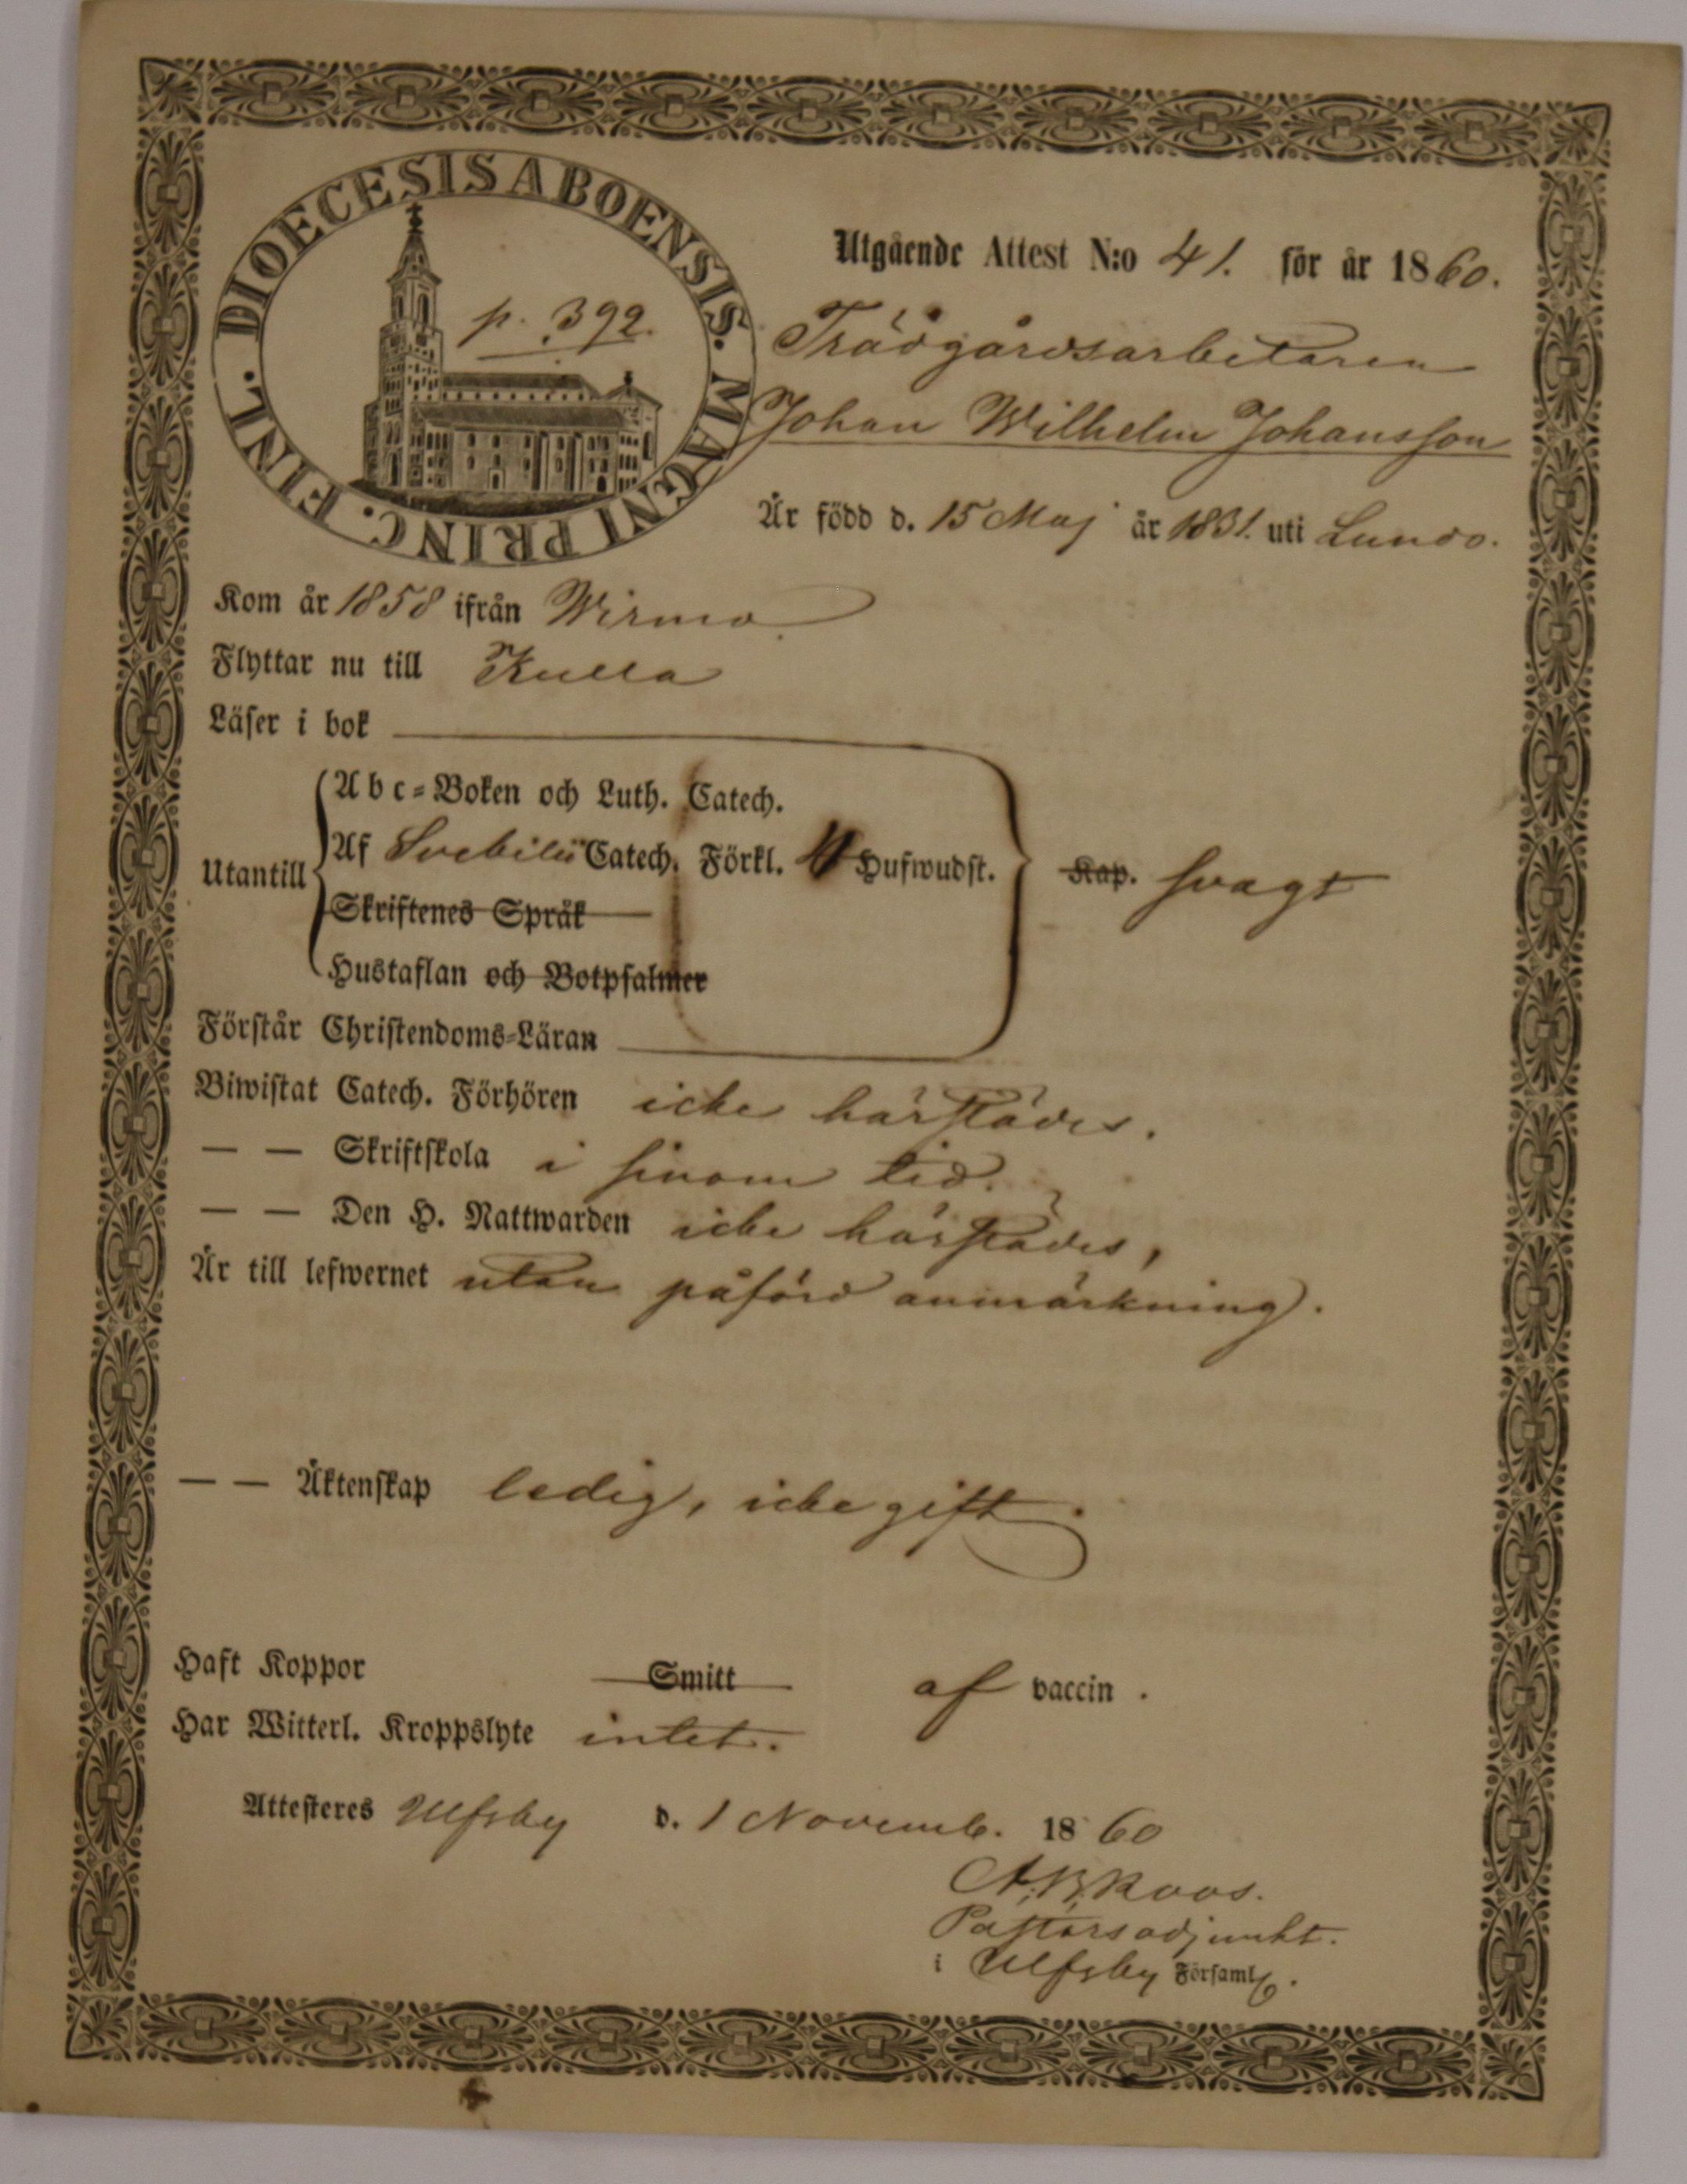 DIOECESIS ABOENSIS. MAGNI PRINC. FINL.
p. 392.
Utgående Attest N:o 41. för år 1860.
Trädgårdsarbetaren
Johan Wilhelm Johansson
Är född d. 15 Maj år 1831. uti Lundo.
Kom år 1858 ifrån Wirmo
Flyttar nu till Kulla
Läser i bok
Abc-Boken och Luth. Catech.
Utantill Af Svebilii Catech. Förkl. Hufwudst. Kap. svagt
Skriftenes Språk
Hustaflan och Botpsalmer
Förstår Christendoms-Läran
Biwistat Catech. Förhören icke härstädes.
— — Skriftskola i sinom tid.
— — Den H. Nattwarden icke härstädes,
Är till lefwernet utan påförd anmärkning.
— — Äktenskap ledig, icke gift.
Haft Koppor Smitt af vaccin.
Har Witterl. Kroppslyte intet.
Attesteres Ulfsby d. 1 Novemb. 1860
Roos.
Pastorsadjunkt.
i Ulfsby Församl.